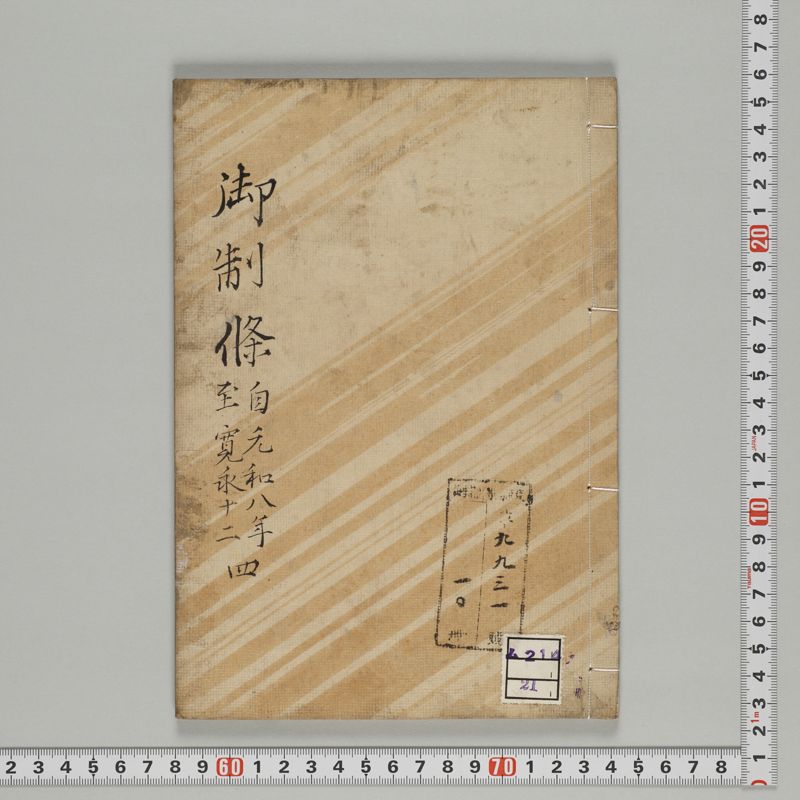 御制條
自元和八年
至寛永十二
四
九九三一
號
一〇
冊
4214
21
8
7
6
5
4
3
2
1
20
9
8
7
6
5
4
3
2
1
10
9
8
7
6
5
4
3
2
1
1m
JAPAN
2 3 4 5 6 7 8 9 60 1 2 3 4 5 6 7 8 9 70 1 2 3 4 5 6 7 8